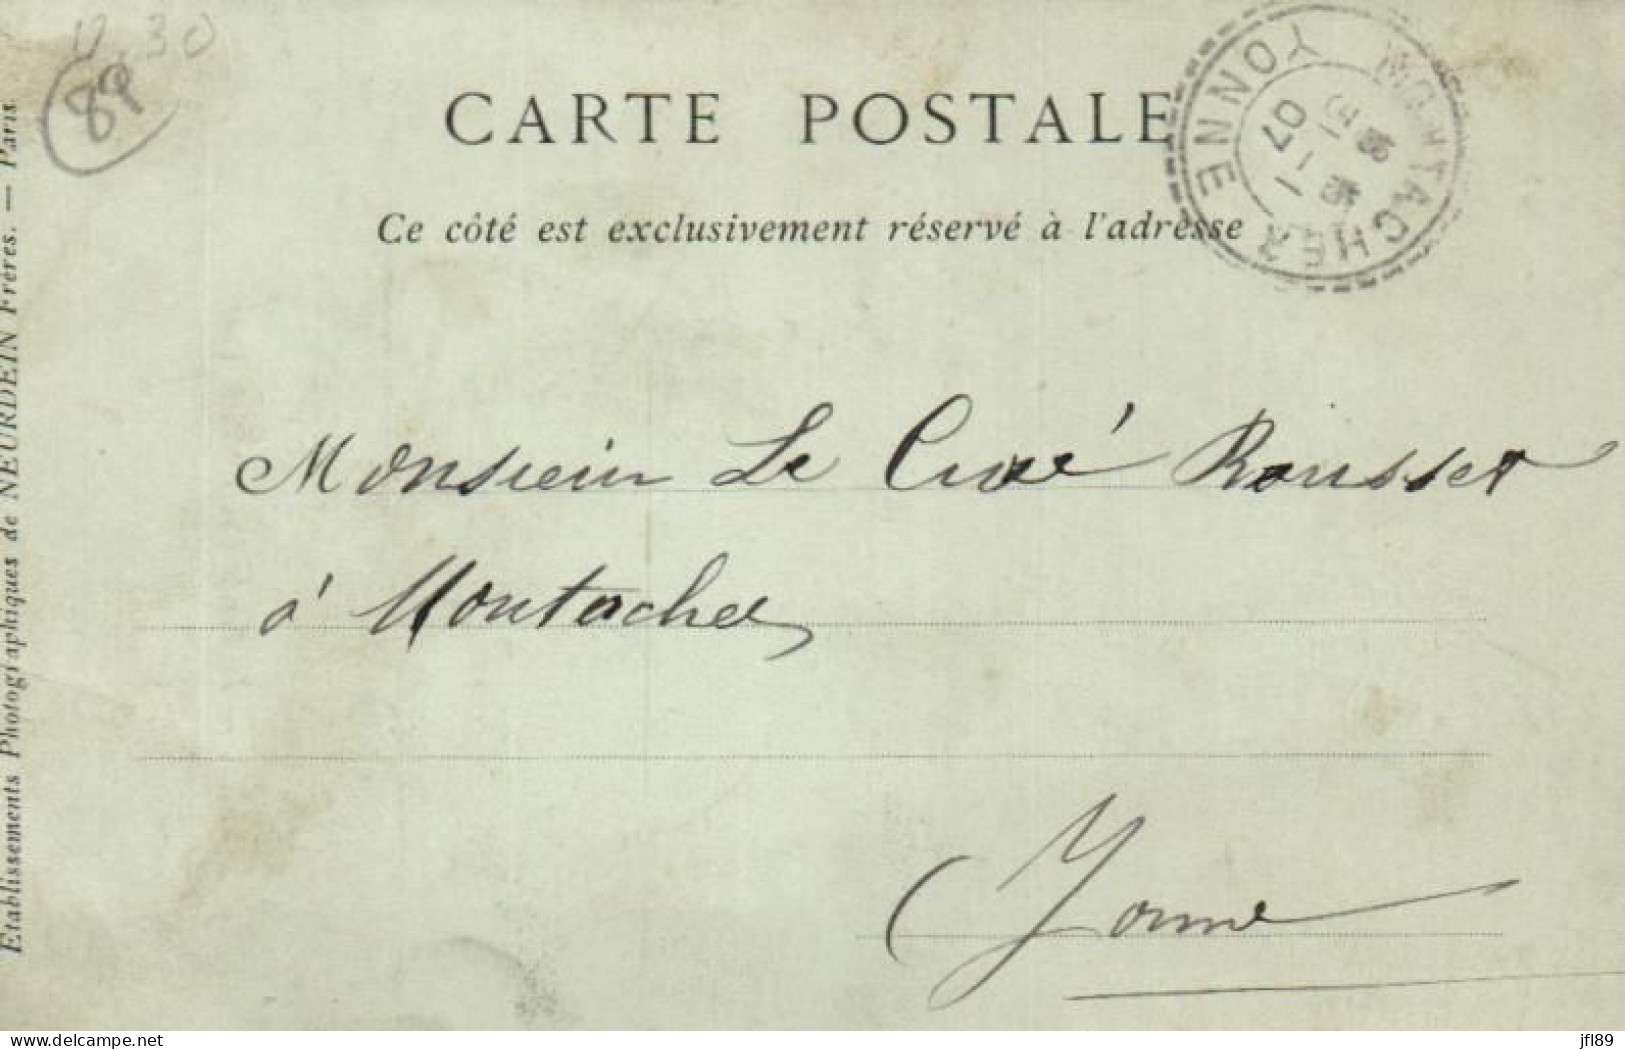 U,30
89
CARTE POSTALE
Ce côté est exclusivement réservé à l'adresse
MONTACHER
YONNE
07
Monsieur Le Curé Rousset
à Montacher
Yonne
Etablissements Photographiques de NEURDEIN Frères. — Paris
www.delcampe.net
jfl89